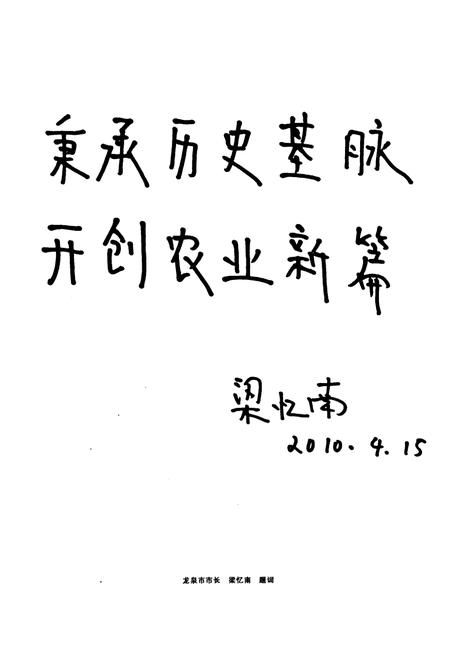 秉承历史基脉
开创农业新篇
梁忆南
2010.4.15
龙泉市市长 梁忆南 题词